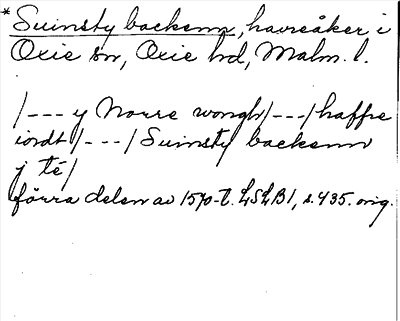 * Suinsty backenn, havreåker i
Oxie sn, Oxie hd, Malm. l.
/--- y Norre wongh/---/haffre
iordt/---/Suinsty backenn
j té/
förra delen av 1570-t. LSLB1, s. 435. orig.